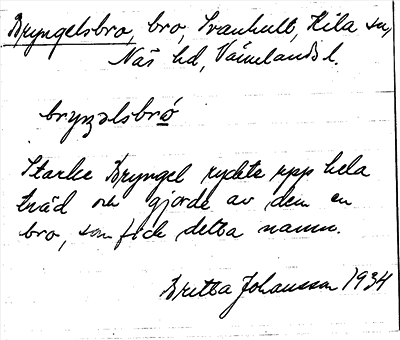 Bryngelsbro, bro, Svanhult, Kila sn,
Näs hd, Värmlands l.
bryŋəlsbró
Starke Bryngel ryckte upp hela
träd och gjorde av dem en
bro, som fick detta namn.
Britta Johansson 1934